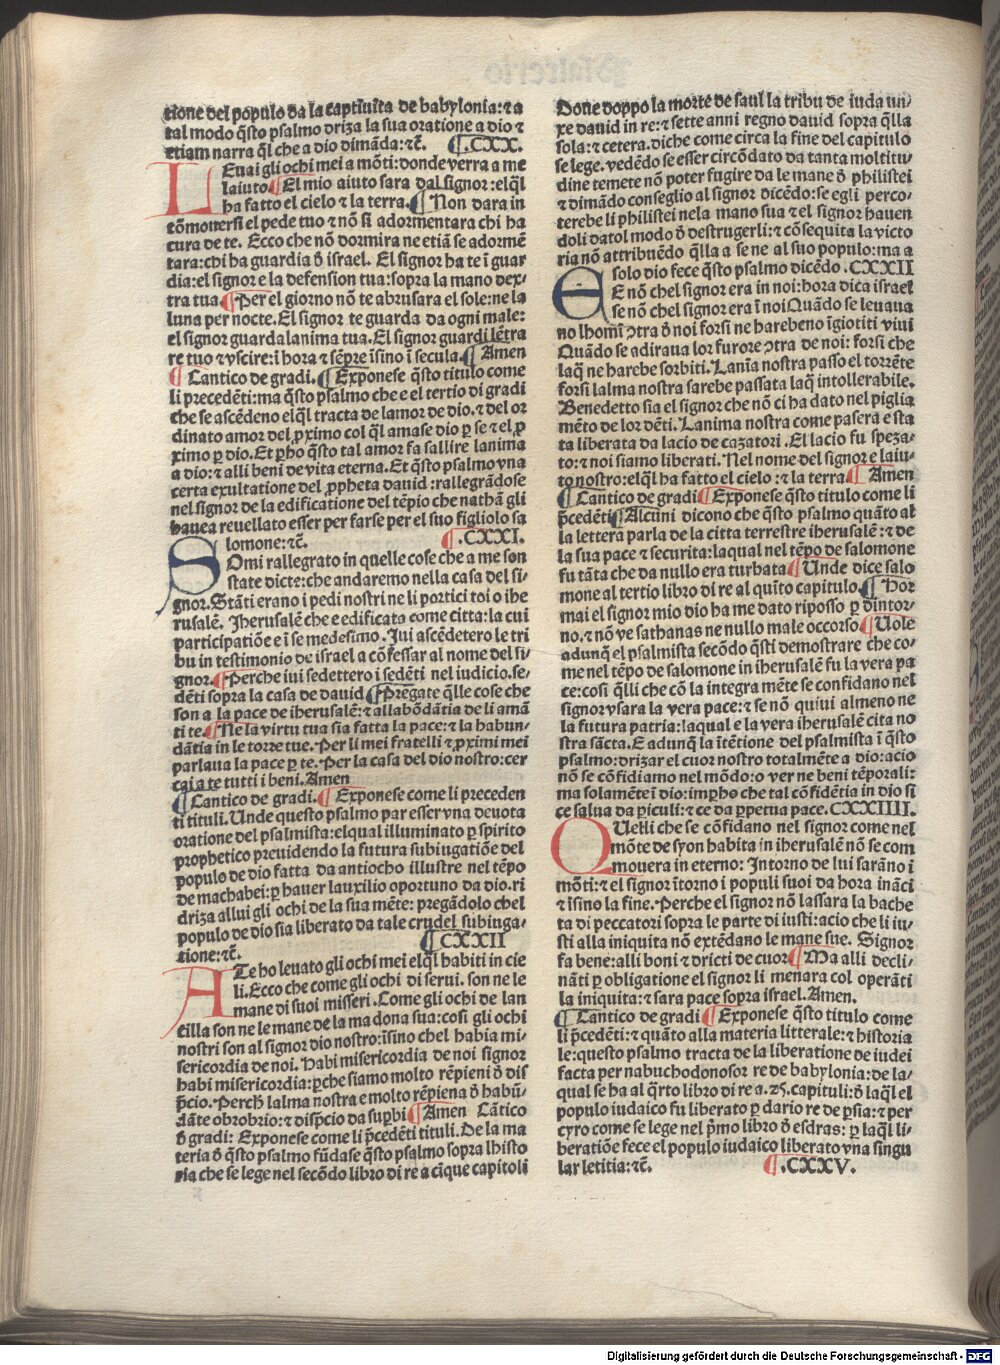 tione del populo da la captiuita de babylonia: ⁊ a
tal modo q̃sto psalmo driza la sua oratione a dio ⁊
etiam narra q̃l che a dio dimãda: ⁊c̃. ¶ .CXX.
LEuai gli ochi mei a mõti: donde verra a me
laiuto ¶ El mio aiuto sara dal signor: elq̃l
ha fatto el cielo ⁊ la terra. ¶ Non dara in
cõmouersi el pede tuo ⁊ nõ si adormentara chi ha
cura de te. Ecco che nõ dormira ne etiã se adormẽ
tara: chi ha guardia õ israel. El signor ha te ĩ guar
dia: el signor e la defension tua: sopra la mano dex-
tra tua. ¶ Per el giorno nõ te abrusara el sole: ne la
luna per nocte. El signor te guarda da ogni male:
el signor guarda lanima tua. El signor guardi lẽtra
re tuo ⁊ vscire: ĩ hora ⁊ sẽpre ĩsino ĩ secula. ¶ Amen
¶ Cantico de gradi. ¶ Exponese q̃sto titulo come
li precedẽti: ma q̃sto psalmo che e el tertio di gradi
che se ascẽdeno elq̃l tracta de lamor de dio. ⁊ del or
dinato amor del ꝓximo col q̃l amase dio ꝑ se ⁊ el ꝓ
ximo ꝑ dio. Et ꝑho q̃sto tal amor fa sallire lanima
a dio: ⁊ alli beni de vita eterna. Et q̃sto psalmo vna
certa exultatione del ꝓpheta dauid: rallegrãdose
nel signor de la edificatione del tẽpio che nathã gli
hauea reuellato esser per farse per el suo figliolo sa
lomone: ⁊c̃. ¶ .CXXI.
SOmi rallegrato in quelle cose che a me son
state dicte: che andaremo nella casa del si-
gnor. Stãti erano i pedi nostri ne li portici toi o ihe
rusalẽ. Jherusalẽ che e edificata come citta: la cui
participatiõe e ĩ se medesimo. Jui ascẽdetero le tri
bu in testimonio de israel a cõfessar al nome del si-
gnor. ¶ Perche iui sedettero i sedẽti nel iudicio. se-
dẽti sopra la casa de dauid ¶ Pregate q̃lle cose che
son a la pace de iherusalẽ: ⁊ allabõdãtia de li amã
ti te. ¶ Ne la virtu tua sia fatta la pace: ⁊ la habun-
dãtia in le torre tue. Per li mei fratelli ⁊ ꝓximi mei
parlaua la pace ꝑ te. Per la casa del dio nostro: cer
cai a te tutti i beni. Amen
¶ Cantico de gradi. ¶ Exponese come li preceden
ti tituli. Unde questo psalmo par esser vna deuota
oratione del psalmista: elqual illuminato ꝑ spirito
prophetico preuidendo la futura subiugatiõe del
populo de dio fatta da antiocho illustre nel tẽpo
de machabei: ꝑ hauer lauxilio oportuno da dio. ri
driza allui gli ochi de la sua mẽte: pregãdolo chel
populo de dio sia liberato da tale crudel subiuga-
tione: ⁊c̃. ¶ CXXII
ATe ho leuato gli ochi mei elq̃l habiti in cie
li. Ecco che come gli ochi di serui. son ne le
mane di suoi misseri. Come gli ochi de lan
cilla son ne le mane de la madona sua: cosi gli ochi
nostri son al signor dio nostro: ĩsino chel habia mi-
sericordia de noi. Habi misericordia de noi signor
habi misericordia: ꝑche siamo molto rẽpieni õ dis
p̃cio. Perch̃ lalma nostra e molto rẽpiena õ habũ-
dãte obrobrio: ⁊ disp̃cio da suꝑbi ¶ Amen Cãtico
õ gradi: Exponese come li p̃cedẽti tituli. De la ma
teria õ q̃sto psalmo fũdase q̃sto psalmo sopra lhisto
ria che se lege nel secõdo libro di re a cĩque capitoli
Done doppo la morte de saul la tribu de iuda un-
xe dauid in re: ⁊ sette anni regno dauid sopra q̃lla
sola: ⁊ cetera. diche come circa la fine del capitulo
se lege. vedẽdo se esser circõdato da tanta moltitu-
dine temete nõ poter fugire da le mane õ philistei
⁊ dimãdo conseglio al signor dicẽdo: se egli perco-
terebe li philistei ne la mano sua ⁊ el signor hauen
doli dato l modo õ destrugerli: ⁊ cõsequita la victo
ria nõ attribuẽdo q̃lla a se ne al suo populo: ma a
solo dio fece q̃sto psalmo dicẽdo. CXXIII
E nõ chel signor era in noi: hora dica israel
se nõ chel signor era ĩ noi Quãdo se leuaua
no lhomĩ ↄtra õ noi forsi ne harebeno ĩgiotiti viui
Quãdo se adiraua lor furore ↄtra de noi: forsi che
laq̃ ne harebe sorbiti. Lanĩa nostra passo el torrẽte
forsi lalma nostra sarebe passata laq̃ intollerabile.
Benedetto sia el signor che nõ ci ha dato nel piglia
mẽto de lor dẽti. Lanima nostra come pasera e sta
ta liberata da lacio de cazatori. El lacio fu speza-
to: ⁊ noi siamo liberati. Nel nome del signor e laiu-
to nostro: elq̃l ha fatto el cielo: ⁊ la terra ¶ Amen
¶ Cantico de gradi ¶ Exponese q̃sto titulo come li
p̃cedẽti ¶ Alcuni dicono che q̃sto psalmo quãto al
la lettera parla de la citta terrestre iherusalẽ: ⁊ de
la sua pace ⁊ securita: laqual nel tẽpo de salomone
fu tãta che da nullo era turbata ¶ Unde dice salo
mone al tertio libro di re al quĩto capitulo. ¶ Hor
mai el signor mio dio ha me dato riposso ꝑ dintor-
no. ⁊ nõ ve sathanas ne nullo male occorso ¶ Uole
adunq̃ el psalmista secõdo q̃sti demostrare che co-
me nel tẽpo de salomone in iherusalẽ fu la vera pa
ce: cosi q̃lli che cõ la integra mẽte se confidano nel
signor vsara la vera pace: ⁊ se nõ quiui almeno ne
la futura patria: laqual e la vera iherusalẽ cita no
stra sãcta. E adunq̃ la ĩtẽtione del psalmista ĩ q̃sto
psalmo: drizar el cuor nostro totalmẽte a dio: acio
nõ se cõfidiamo nel mõdo: o ver ne beni tẽporali:
ma solamẽte ĩ dio: imꝑho che tal cõfidẽtia in dio si
ce salua da ꝑiculi: ⁊ ce da ꝑpetua pace. CXXIIII.
QUelli che se cõfidano nel signor come nel
mõte de syon habita in iherusalẽ nõ se com
mouera in eterno: Intorno de lui sarãno i
mõti: ⁊ el signor ĩtorno i populi suoi da hora inãci
⁊ ĩsino la fine. Perche el signor nõ lassara la bache
ta di peccatori sopra le parte di iusti: acio che li iu-
sti alla iniquita nõ extẽdano le mane sue. Signor
fa bene: alli boni ⁊ dricti de cuor ¶ Ma alli decli-
nãti ꝑ obligatione el signor li menara col operãti
la iniquita: ⁊ sara pace sopra israel. Amen.
¶ Cantico de gradi ¶ Exponese q̃sto titulo come
li p̃cedẽti: ⁊ quãto alla materia litterale: ⁊ historia
le: questo psalmo tracta de la liberatione de iudei
facta per nabuchodonosor re de babylonia: de la-
qual se ha al q̃rto libro di re a .25. capituli: õ laq̃l el
populo iudaico fu liberato ꝑ dario re de ꝑsia: ⁊ per
cyro come se lege nel p̃mo libro õ esdras: ꝑ laq̃l li-
beratiõe fece el populo iudaico liberato vna singu
lar letitia: ⁊c̃. ¶ .CXXV.
Digitalisierung gefördert durch die Deutsche Forschungsgemeinschaft - DFG